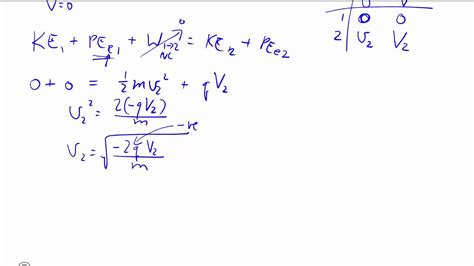 V=0
υ V
1 0 0
2 υ₂ V₂
KE₁ + PEₑ₁ + W_nc 1→2 ↗0 = KE₂ + PEₑ₂
0 + 0 = 1/2 m υ₂² + q V₂
υ₂² = 2(-q V₂)/m
υ₂ = √(-2 q V₂/m) ← -ve